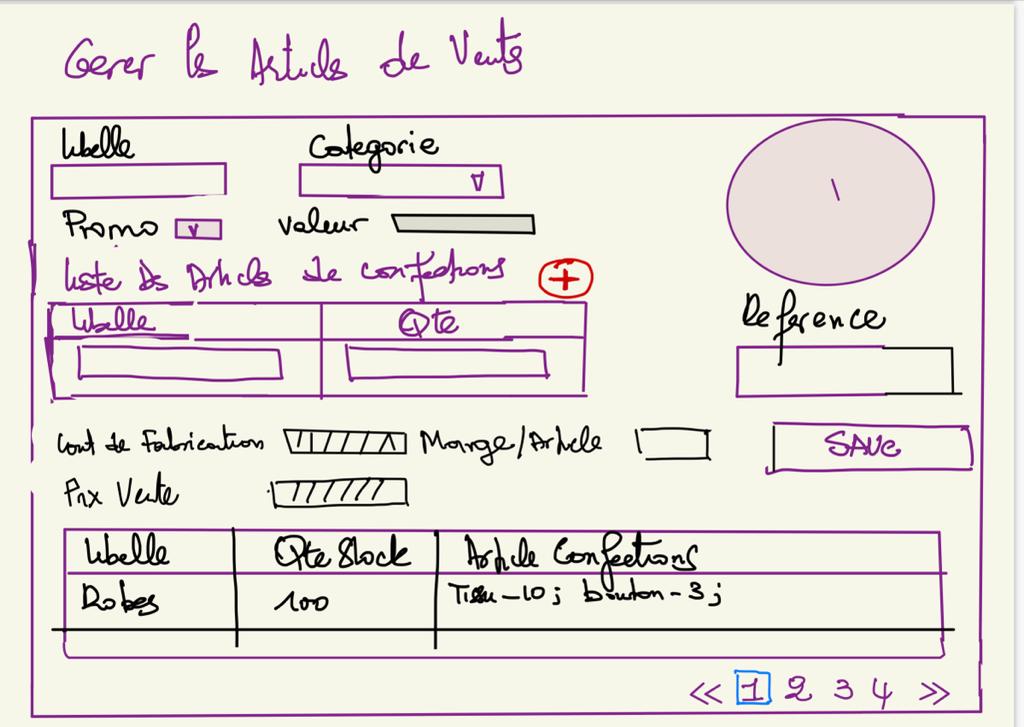 Gerer les Articles de Vents
Libelle Categorie
Promo valeur
liste Ds Articles de confections +
Libelle Qte
Reference
Cout de Fabrication Marge/Article
SAVE
Prix Vente
Libelle Qte Stock Article Confections
Robes 100 Tissu-10; bouton-3;
<< 1 2 3 4 >>